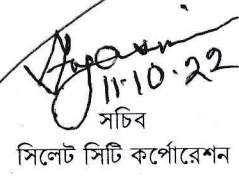 11.10.22
সচিব
সিলেট সিটি কর্পোরেশন